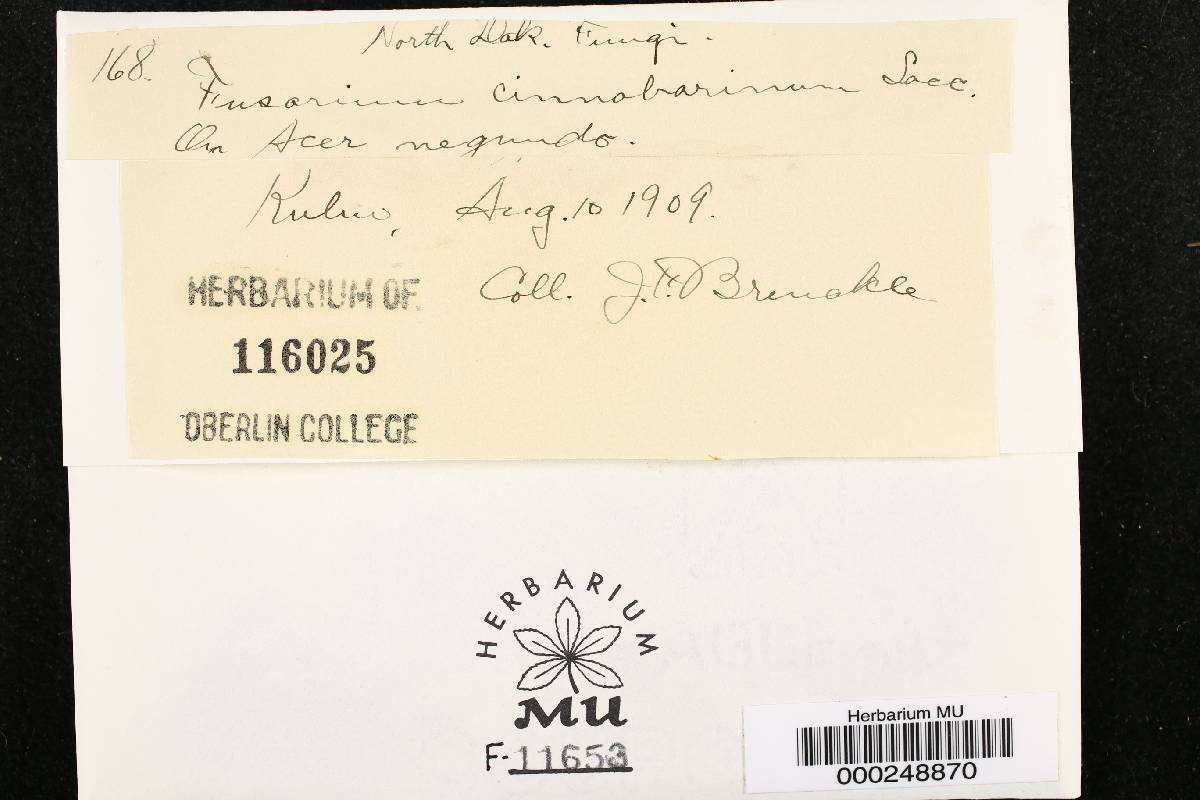 North Dak. Fungi.
168.
Fusarium cinnabarinum Sacc.
On Acer negundo.
Kulm, Aug. 10 1909.
Coll. J. F. Brenckle
HERBARIUM OF
116025
OBERLIN COLLEGE
HERBARIUM
MU
F-11653
Herbarium MU
000248870